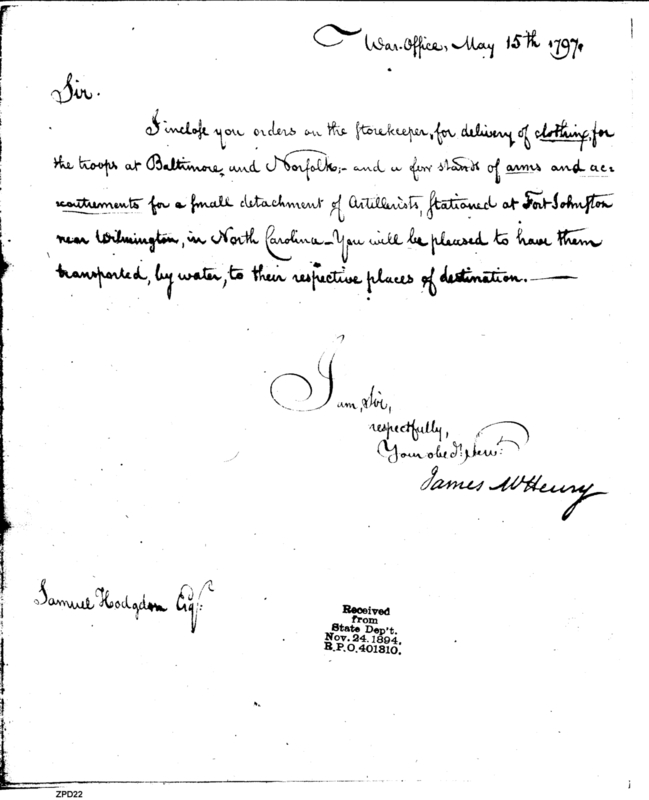 War-Office, May 15th 1797.
Sir.
I inclose you orders on the storekeeper, for delivery of clothing, for
the troops at Baltimore, and Norfolk;- and a few stands of arms and ac=
coutrements for a small detachment of Artillerists, stationed at Fort Johnston
near Wilmington, in North Carolina - You will be pleased to have them
transported, by water, to their respective places of destination.—
I am, Sir,
respectfully,
Your obed.t Serv.t
James McHenry
Samuel Hodgdon Esq.r
Received
from
State Dep't.
Nov. 24. 1894.
R.P.O. 401810.
ZPD22